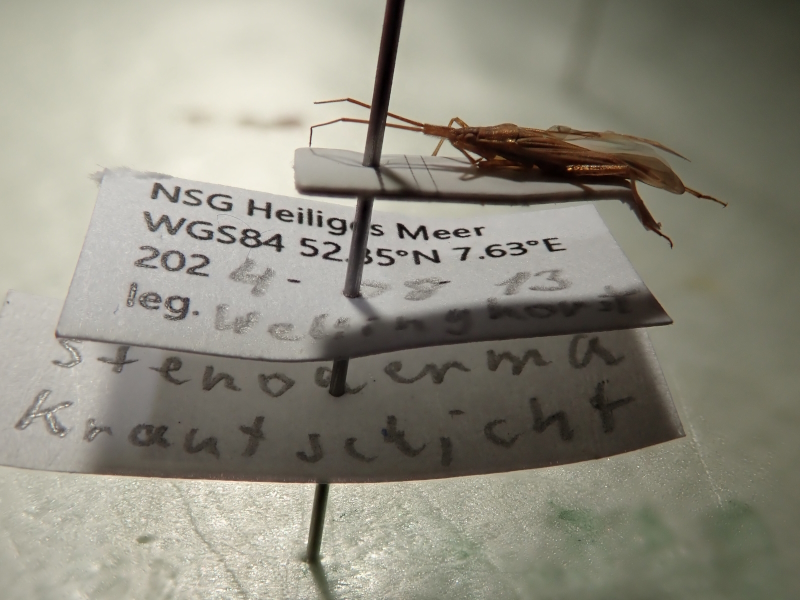 NSG Heiliges Meer
WGS84 52.35°N 7.63°E
2024-08-13
leg. Wellinghorst
Stenoderma
Krautschicht